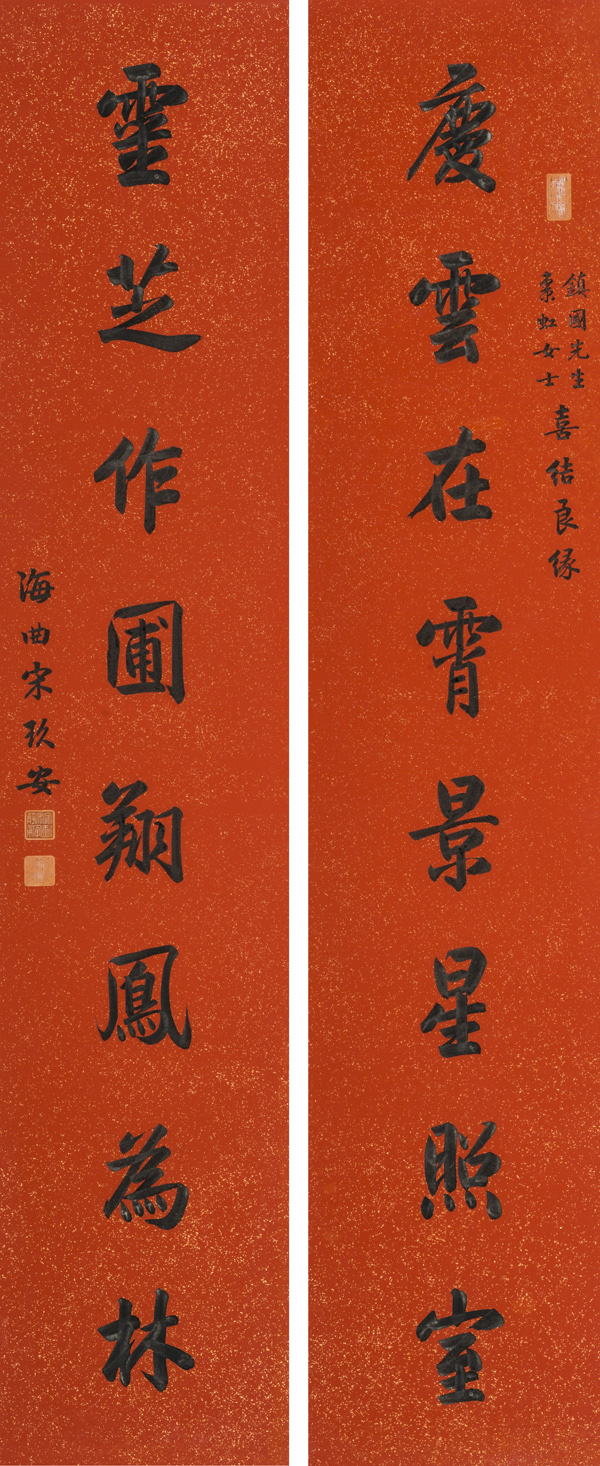 鎮國先生
虹女士
喜結良緣
慶雲在霄景星照室
靈芝作圃翔鳳為林
海曲宋玖安